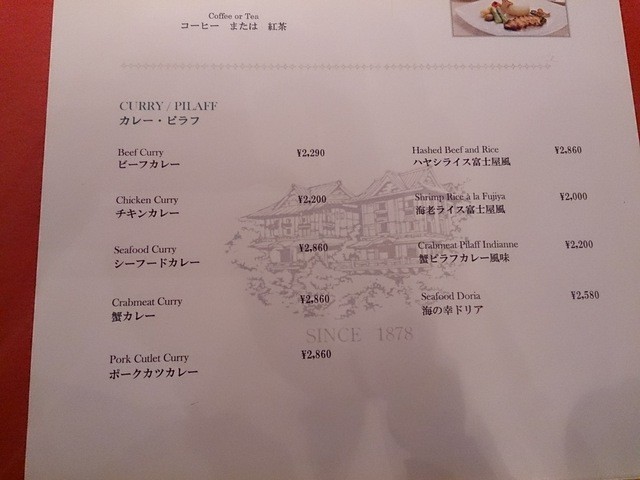 Coffee or Tea
コーヒー または 紅茶
CURRY / PILAFF
カレー・ピラフ
Beef Curry ¥2,290
ビーフカレー
Chicken Curry ¥2,200
チキンカレー
Seafood Curry ¥2,860
シーフードカレー
Crabmeat Curry ¥2,860
蟹カレー
Pork Cutlet Curry ¥2,860
ポークカツカレー
Hashed Beef and Rice ¥2,860
ハヤシライス富士屋風
Shrimp Rice à la Fujiya ¥2,000
海老ライス富士屋風
Crabmeat Pilaff Indianne ¥2,200
蟹ピラフカレー風味
Seafood Doria ¥2,580
海の幸ドリア
SINCE 1878